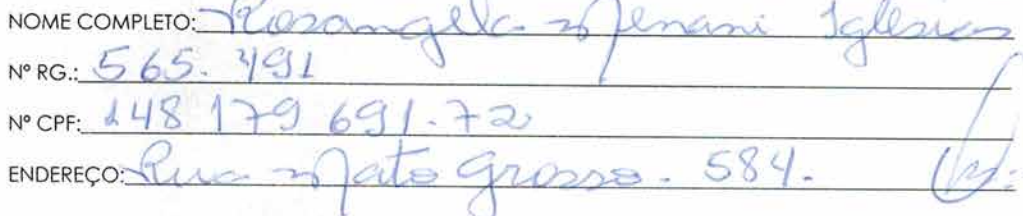 NOME COMPLETO: Rosangela Menani Iglesias
Nº RG.: 565.491
Nº CPF: 148 179 691.72
ENDEREÇO: Rua Mato Grosso. 584.